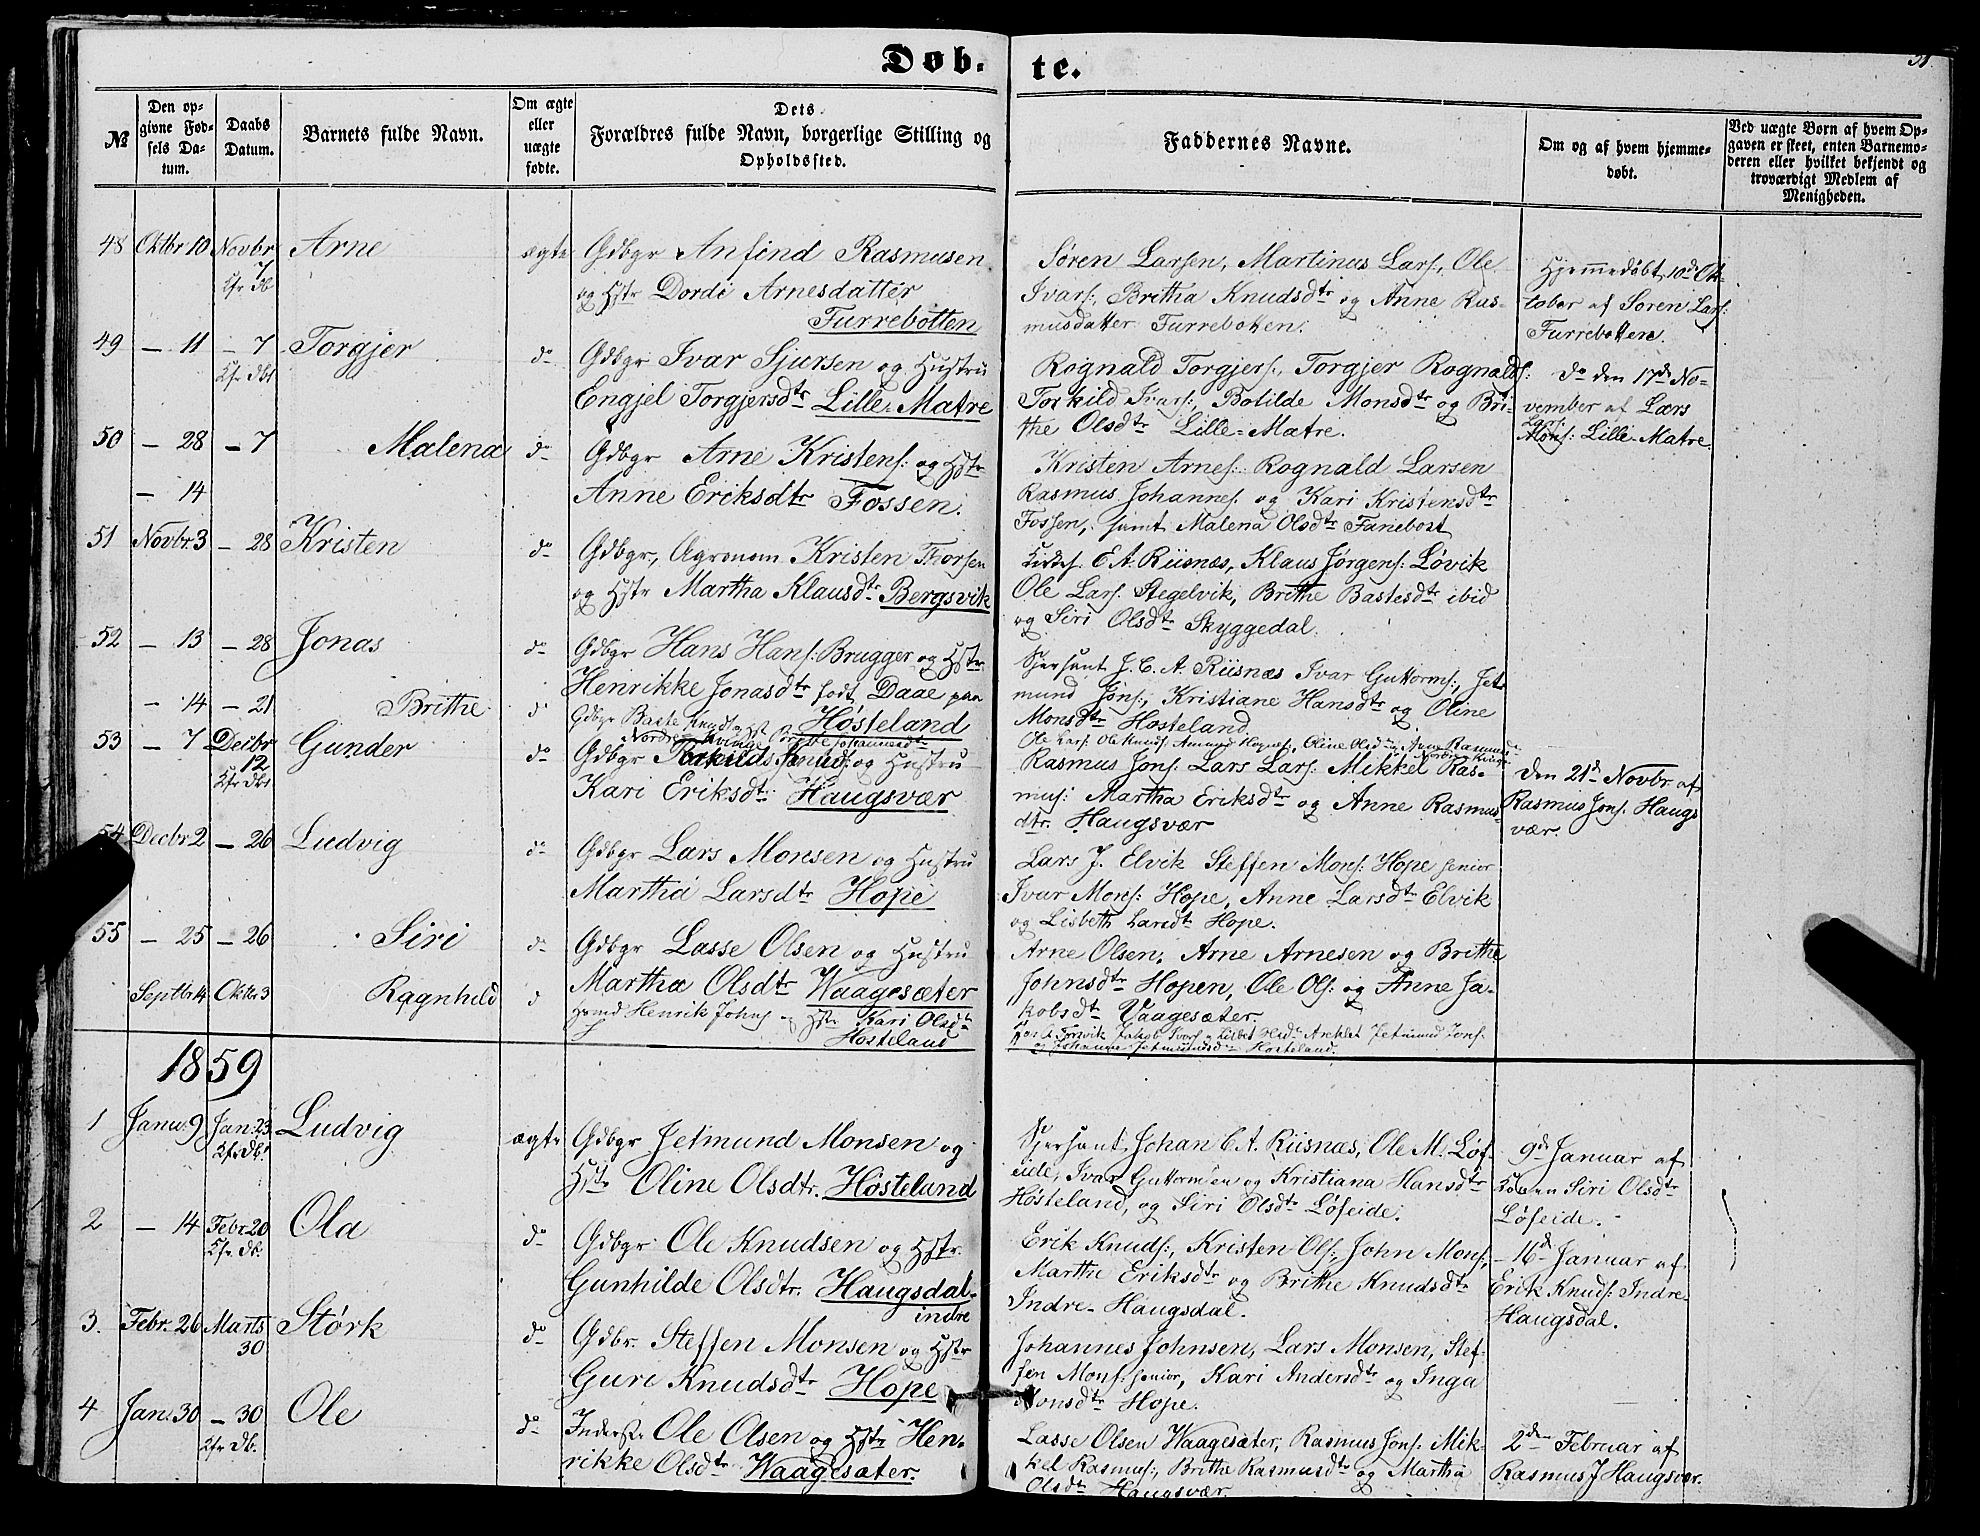 Døb- te.
31
№
Den op-
givne Fød-
sels Da-
tum.
Daabs
Datum.
Barnets fulde Navn.
Om ægte
eller
uægte
fødte.
Dets
Forældres fulde Navn, borgerlige Stilling og
Opholdssted.
Faddernes Navne.
Om og af hvem hjemme-
døbt.
Ved uægte Børn af hvem Op-
gaven er skeet, enten Barnemo-
deren eller hvilket bekjendt og
troværdigt Medlem af
Menigheden.
48 Oktbr 10 Novbr 7 Arne ægte Gdbgr Anfind Rasmusen
og Hstr Dordi Arnesdatter
Furrebotten
Søren Larsen, Martinus Lars:, Ole
Ivars:, Britha Knudsdtr og Anne Ras-
musdatter Furreboten.
Hjemmedøbt 10de Ok-
tober af Søren Lars:
Furrebotten.
49 – 11 – 7 Torgjer do Gdbgr Ivar Sjursen og Hustru
Engjel Torgjersdtr Lille-Matre
Rognald Torgjers:, Torgjer Rognalds:
Torkild Ivars:, Botilde Monsdtr og Bri-
the Olsdtr Lille-Matre.
do den 17de No-
vember af Lars
Lars:
Mons: Lille-Matre.
50 – 28 – 7 Malena do Gdbgr Arne Kristens: og Hstr
– 14
Anne Eriksdtr Fossen.
Kristen Arnes: Rognald Larsen
Rasmus Johannes: og Kari Kristensdtr
Fossen, samt Malena Olsdtr Tanebost
51 Novbr. 3 – 28 Kristen do Gdbgr, Agronom Kristen Thorsen
og Hstr Martha Klausdtr Bergsvik
E A. Riisnæs, Klaus Jørgens: Løvik
Ole Lars: Stegelvik, Brithe Bastesdtr ibid
og Siri Olsdtr Skyggedal.
52 – 13 – 28 Jonas do Gdbgr Hans Hans: Brugger og Hstr
Henrikke Jonasdtr født Daae paa
Høsteland
Sjersant J. C. A. Riisnæs Ivar Guttorms:, Jet-
mund Jons:, Kristiane Hansdtr og Oline
Monsdtr Høsteland
– 14 – 21 Brithe do Gdbgr Baste Knuds: og Hst
Nordre-Kvinge Johannesdtr
Ole Lars: Ole Knuds: Amund Hognes:, Oline Olsdtr og Anne Rasmusdtr
53 – 7 Decbr 12 Gunder do Gdbgr Torkild Knuds: og Hustru
Kari Eriksdtr Haugsvær
Rasmus Jons: Lars Lars: Mikkel Ras-
mus: Martha Eriksdtr og Anne Rasmus-
dtr. Haugsvær
Den 21de Novbr af
Rasmus Jons: Haugs
vær.
54 Decbr 2 – 26 Ludvig do Gdbgr Lars Monsen og Hustru
Martha Larsdtr Hope
Lars J. Elvik Steffen Mons: Hope senior
Ivar Mons: Hope, Anne Larsdtr Elvik
og Lisbeth Larsdtr Hope.
55 – 25 – 26 Siri do Gdbgr Lasse Olsen og Hustru
Martha Olsdtr Waagesæter
Arne Olsen, Arne Arnesen og Brithe
Johnsdtr Hopen, Ole Ols: og Anne Ja-
kobsdtr Vaagesæter.
Septbr 14 Oktbr 3 Ragnhild do
Henrik Johns: og Hstr Kari Olsdtr
Høsteland
Jakob Ivars: Jetmund Jons:
Johanne Jetmundsdtr Høsteland.
1859
1 Janu. 9 Jan: 23 Ludvig ægte Gdbgr Jetmund Monsen og
Hstr Oline Olsdtr. Høsteland
Sjersant Johan C. A. Riisnæs, Ole M. Løf-
eide, Ivar Guttormsen og Kristiana Hansdtr
Høsteland, og Siri Olsdtr Løfeide.
9de Januar af
Konen Siri Olsdtr
Løfeide.
2 – 14 Febr. 20 Ola do Gdbgr Ole Knudsen og Hstr.
Gunhilde Olsdtr. Haugsdal-
indre
Erik Knuds:, Kristen Ols:, John Mons:,
Marthe Eriksdtr og Brithe Knudsdtr
Indre-Haugsdal.
– 16de Januar af
Erik Knuds: Indre-
Haugsdal.
3. Febr. 26 Marts 30 Størk do Gdbr. Steffen Monsen og Hstr
Guri Knudsdtr Hope
Johannes Johnsen, Lars Monsen, Stef-
fen Mons: senior, Kari Andersdtr og Inga
Monsdtr Hope.
4 Jan. 30 – 30 Ole do Inderst Ole Olsen og Hstr Hen-
rikke Olsdtr Waagesæter.
Lasse Olsen Waagesæter, Rasmus Jons: Mik-
kel Rasmus:, Brithe Rasmusdtr og Martha
Olsdtr Haugsvær.
2den Februar af
Rasmus J Haugsvær.